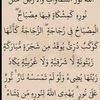 نُورِهِ كَمِشْكَاةٍ فِيهَا مِصْبَاحٌ
الْمِصْبَاحُ فِي زُجَاجَةٍ الزُّجَاجَةُ كَأَنَّهَا
كَوْكَبٌ دُرِّيٌّ يُوقَدُ مِن شَجَرَةٍ مُّبَارَكَةٍ
زَيْتُونَةٍ لَّا شَرْقِيَّةٍ وَلَا غَرْبِيَّةٍ يَكَادُ
زَيْتُهَا يُضِيءُ وَلَوْ لَمْ تَمْسَسْهُ نَارٌ
نُّورٌ عَلَى نُورٍ يَهْدِي اللَّهُ لِنُورِهِ مَن يَشَاءُ